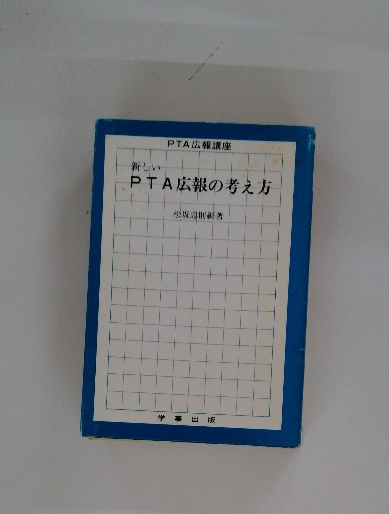 PTA広報講座
新しい
PTA広報の考え方
松坂忠則編著
学事出版